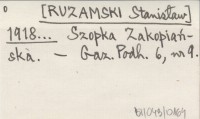 [RUZAMSKI Stanisław]
1918... Szopka Zakopiań-
ska. — Gaz. Podh. 6, nr 9.